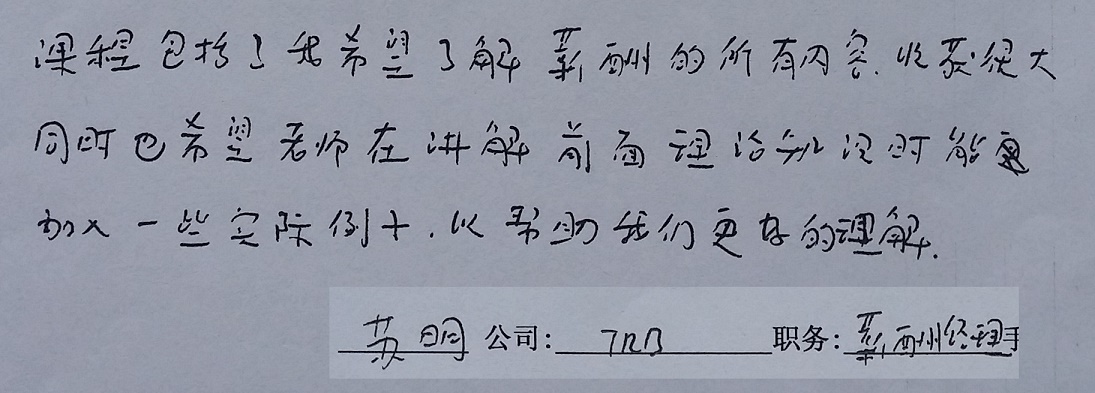 课程包括了我希望了解薪酬的所有内容.收获很大
同时也希望老师在讲解前面理论知识时能更
加入一些实际例子.以帮助我们更好的理解.
苏明 公司: TRB 职务: 薪酬经理手